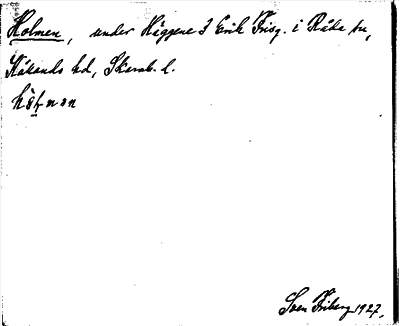 Holmen, under Häggene 3 Erik Frisg. i Råda sn,
Kållands hd, Skarab. l.
Sven Friberg 1927.